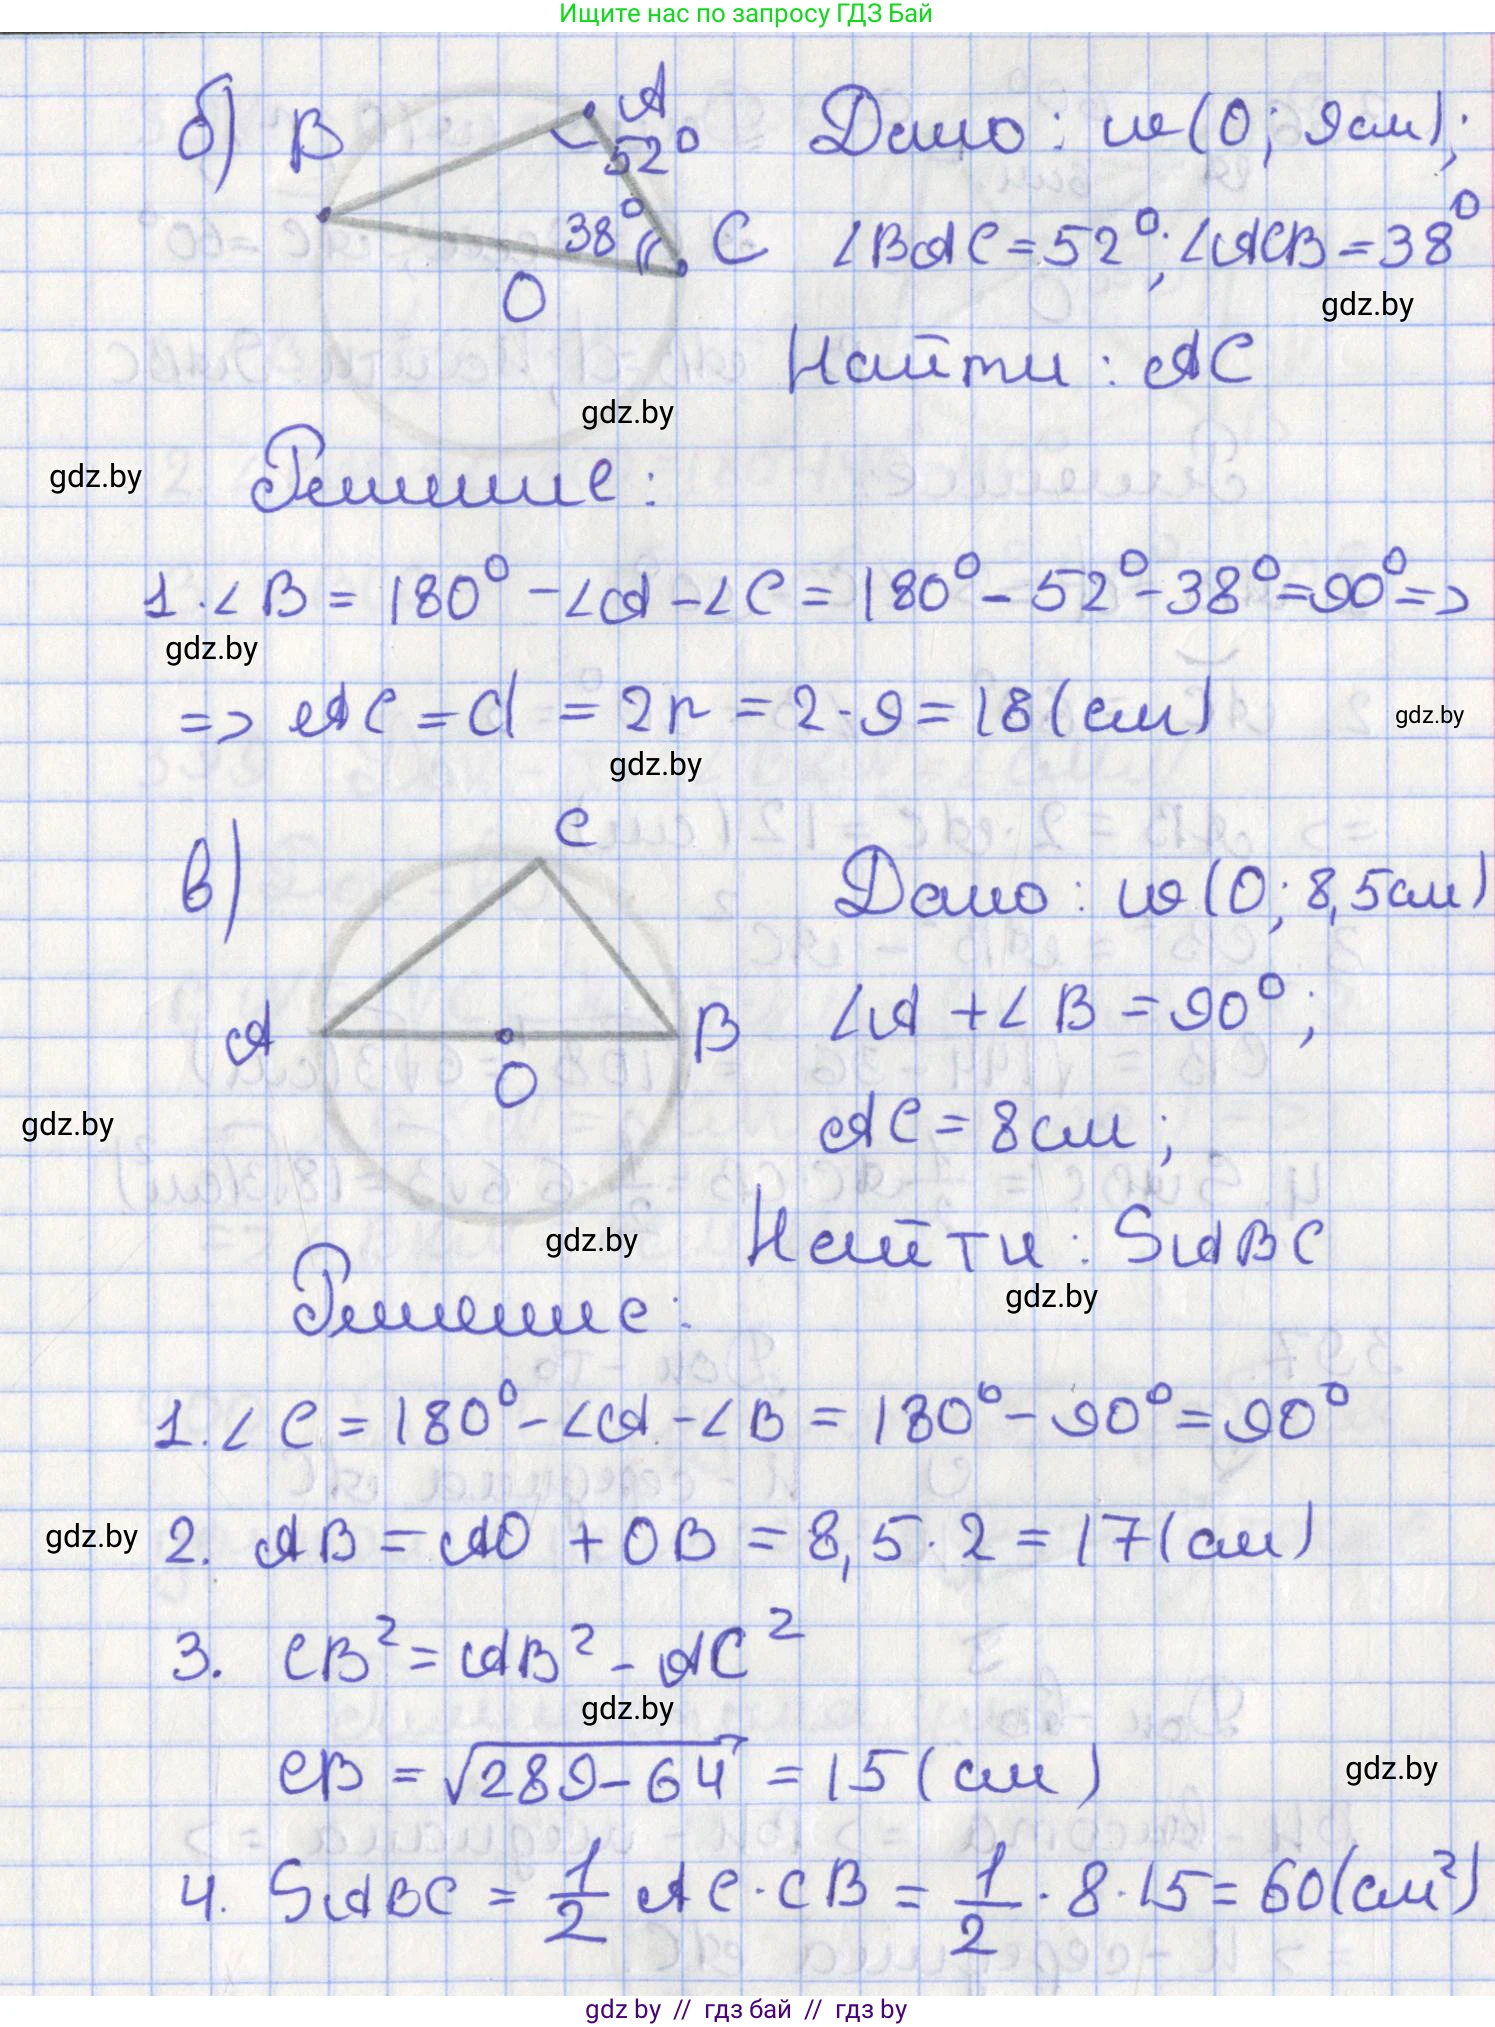 Ищите нас по запросу ГДЗ Бай
б) B A 52° 38° C O
Дано: w(O; 9см);
∠BAC = 52°; ∠ACB = 38°
gdz.by
Найти: AC
gdz.by
gdz.by
Решение:
1. ∠B = 180° - ∠A - ∠C = 180° - 52° - 38° = 90° =>
gdz.by
=> AC = d = 2r = 2·9 = 18(см)
gdz.by
gdz.by
в) C A B O
Дано: w(O; 8,5см)
∠A + ∠B = 90°;
AC = 8см;
gdz.by
Найти: SABC
gdz.by
gdz.by
Решение:
1. ∠C = 180° - ∠A - ∠B = 180° - 90° = 90°
gdz.by
2. AB = AO + OB = 8,5·2 = 17(см)
3. CB² = AB² - AC²
gdz.by
CB = √289-64 = 15(см)
gdz.by
4. SABC = 1/2 AC·CB = 1/2·8·15 = 60(см²)
gdz by // гдз бай // гдз by